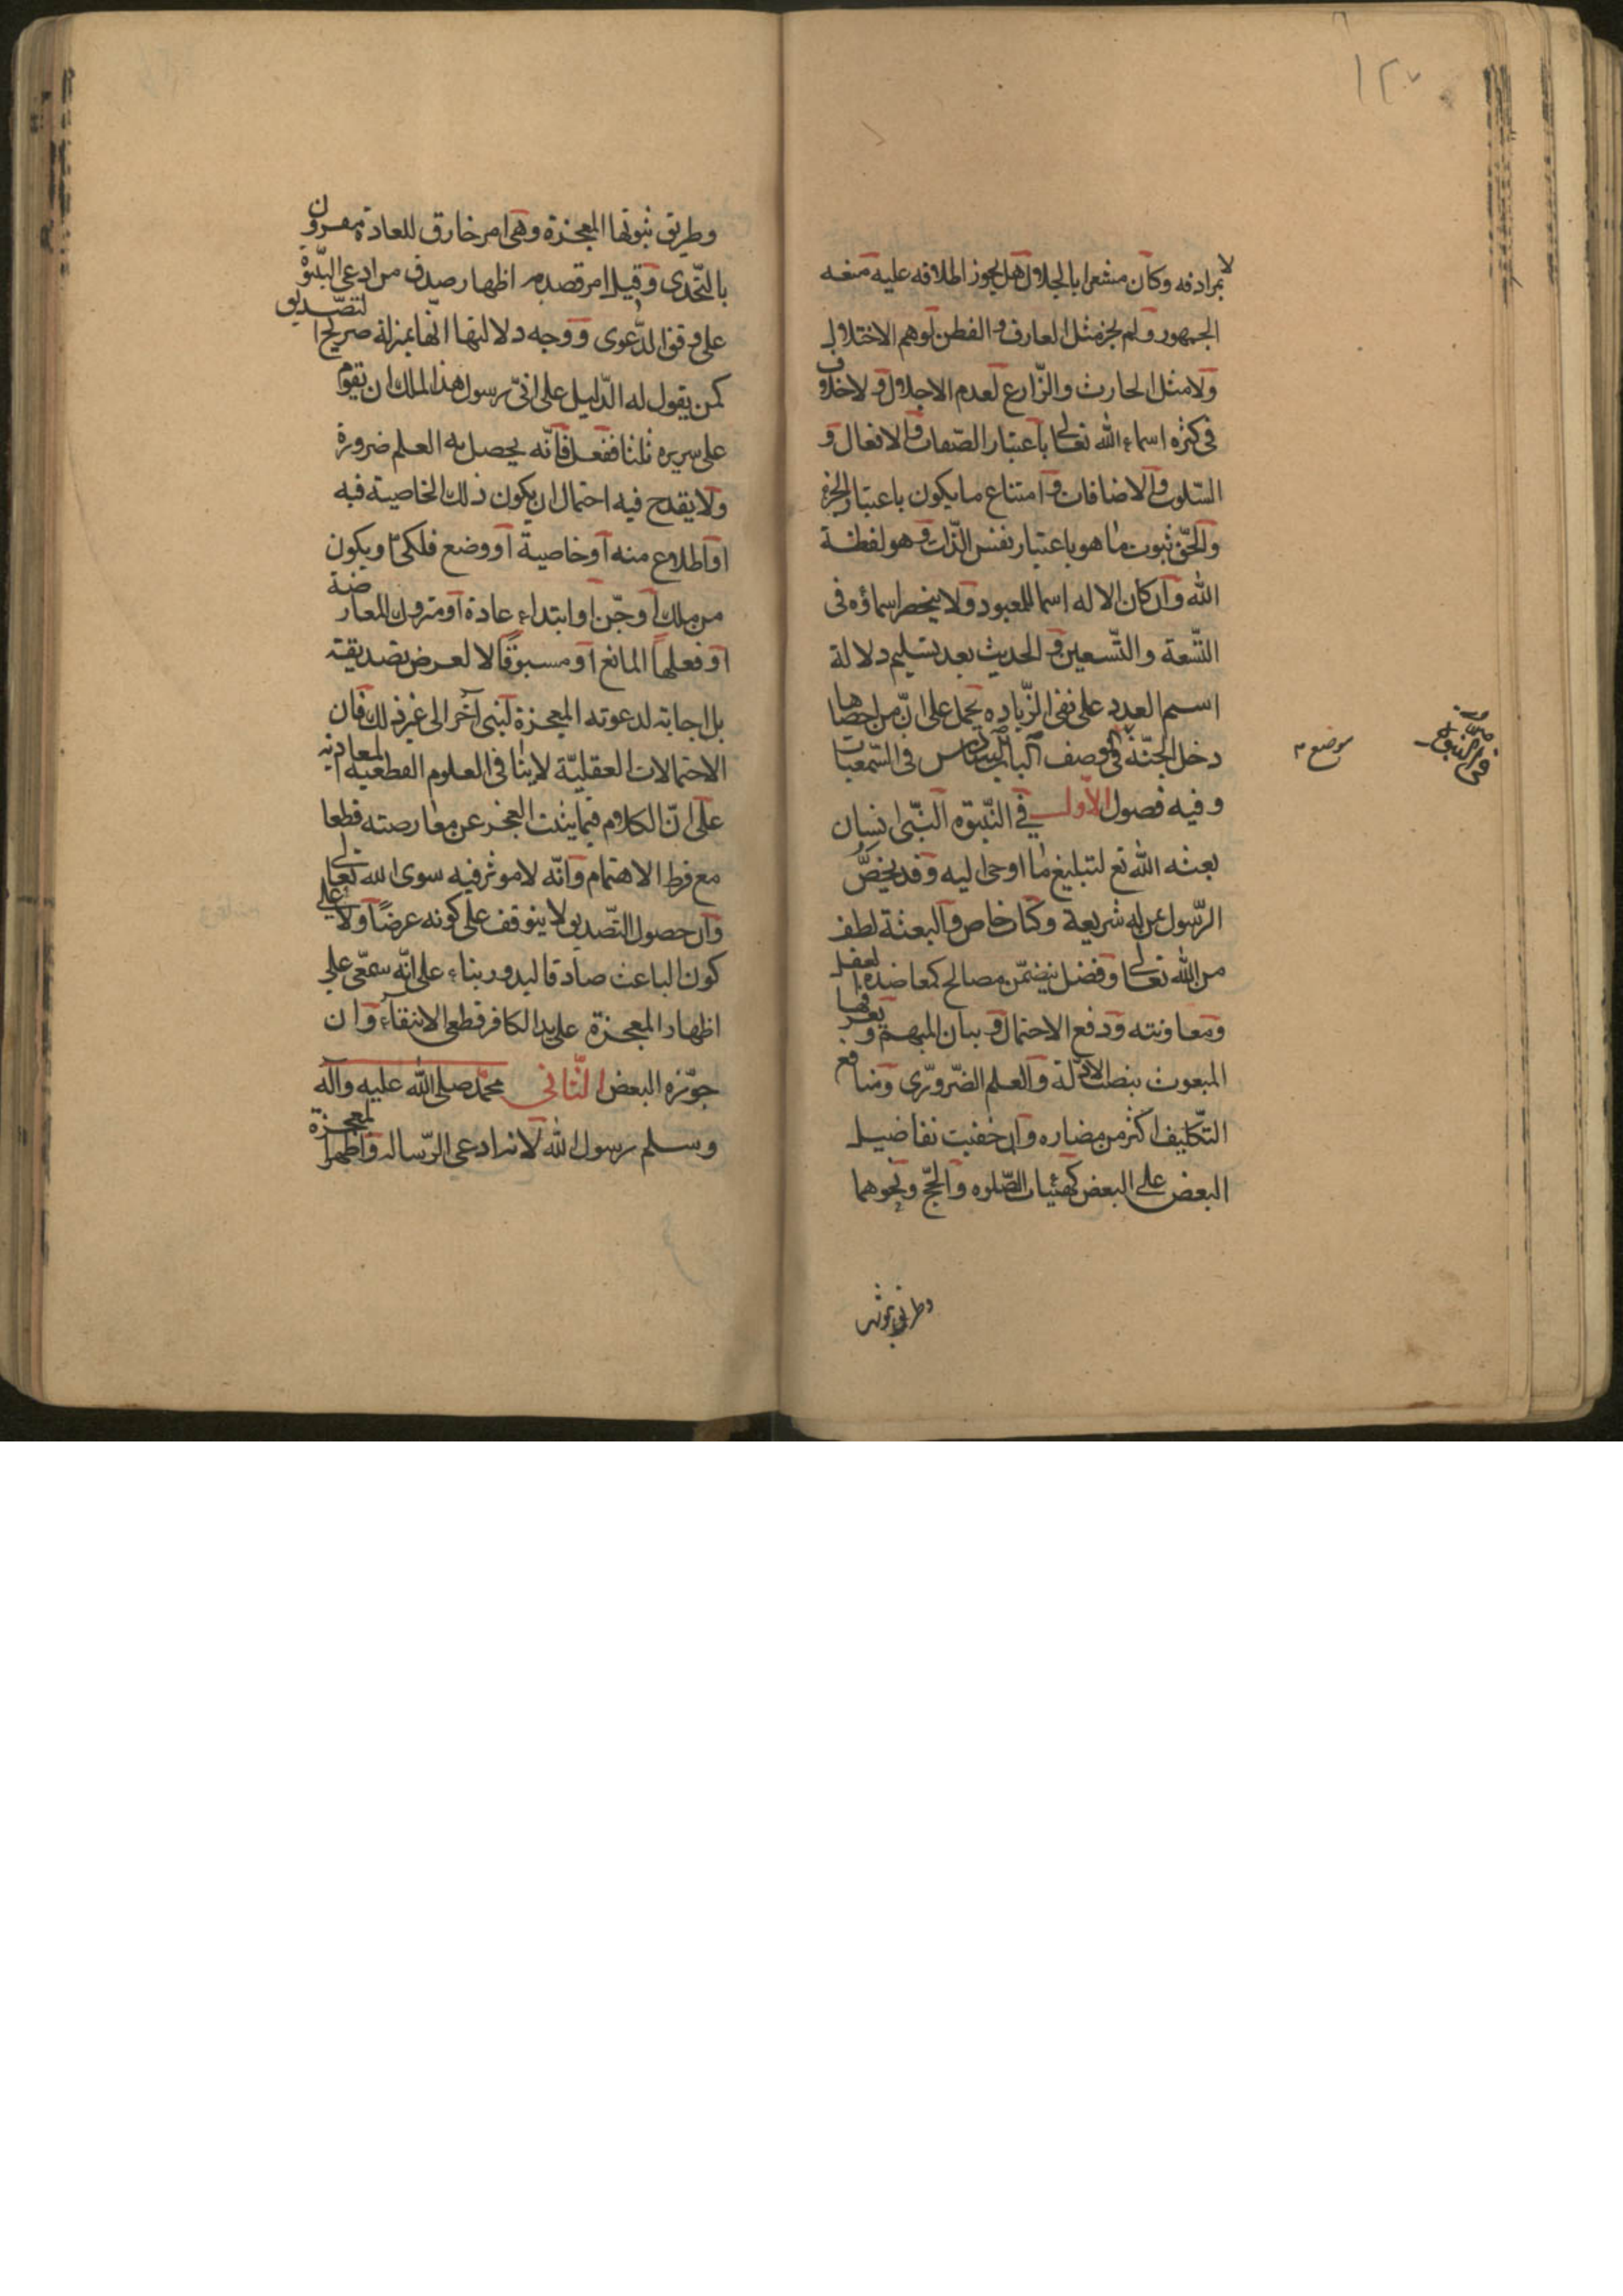 ١٢٠
لا بمرادفه وكان مشعرا بالجلال هل يجوز اطلاقه عليه منعه
الجمهور ولم يجز مثل العارف والفطن لوهم الاختلال
ولا مثل الحارث والزّارع لعدم الاجلال ولا خلاف
فى كثره اسماء الله تعالى باعتبار الصّفات والافعال و
السّلوب والاضافات وامتناع ما يكون باعتبار الجزء
والحقّ ثبوت ما هو باعتبار نفس الذّات وهو لفظة
الله وان كان الاله اسما للمعبود ولا ينحصر اسماؤه فى
التّسعة والتّسعين والحديث بعد تسليم دلالة
اسم العدد على نفى الزّياده يحمل على انّ من احصاها
دخل الجنّة فى وصف الباب السادس فى السّمعيات
وفيه فصول الاول في النّبوّه النّبى انسان
بعثه الله تع لتبليغ ما اوحى اليه وقد يخصّ
الرّسول بمن له شريعة وكتاب خاص والبعثة لطف
من الله تعالى وفضل يتضمّن مصالح كمعاضدة العقل
ومعاونته ودفع الاحتمال وبيان المبهم و يعرفها
المبعوث بنصب الادلّة والعلم الضّرورّى ومنافع
التّكليف اكثر من مضاره وان خفيت تفاضيل
البعض على البعض كهيئات الصّلوه والحجّ ونحوهما
موضع م
وطريق ثبوتها
وطريق ثبوتها المعجزة وهى امر خارق للعادة مقرون
بالتّحدى وقيل امر قصد به اظهار صدق من ادعى النّبوّة
على وفق الدّعوى ووجه دلالتها انّها بمنزلة صريح التصّديق
كمن يقول له الدّليل على انّى رسول هذا الملك ان يقوم
على سريره ثلثا ففعل فانّه يحصل به العلم ضرورة
ولا يقدح فيه احتمال ان يكون ذلك الخاصية فيه
او اطلاع منه او خاصية او وضع فلكىّ او يكون
من ملك او جنّ او ابتداء عادة او متروك المعارضة
او فعلها المانع او مسبوقا لا لغرض تصديقه
بل اجابة لدعوته المعجزة لنبى آخر الى غير ذلك فان
الاحتمالات العقليّة لا ينافى العلوم القطعيه العادية
على انّ الكلام فيما يثبت العجز عن معارضته قطعا
مع فرط الاهتمام وانّه لا موثر فيه سوى الله تعالى
وان حصول التّصديق لا يتوقف على كونه عرضا ولا على
كون الباعث صادقا ليدور بناء على انّه سمعّى على
اظهار المعجزة على يد الكافر قطعى الانتفاء وان
جوّزه البعض الثّانى محمّد صلى الله عليه وآله
وسلم رسول الله لانه ادعى الرّساله واظهر المعجزة